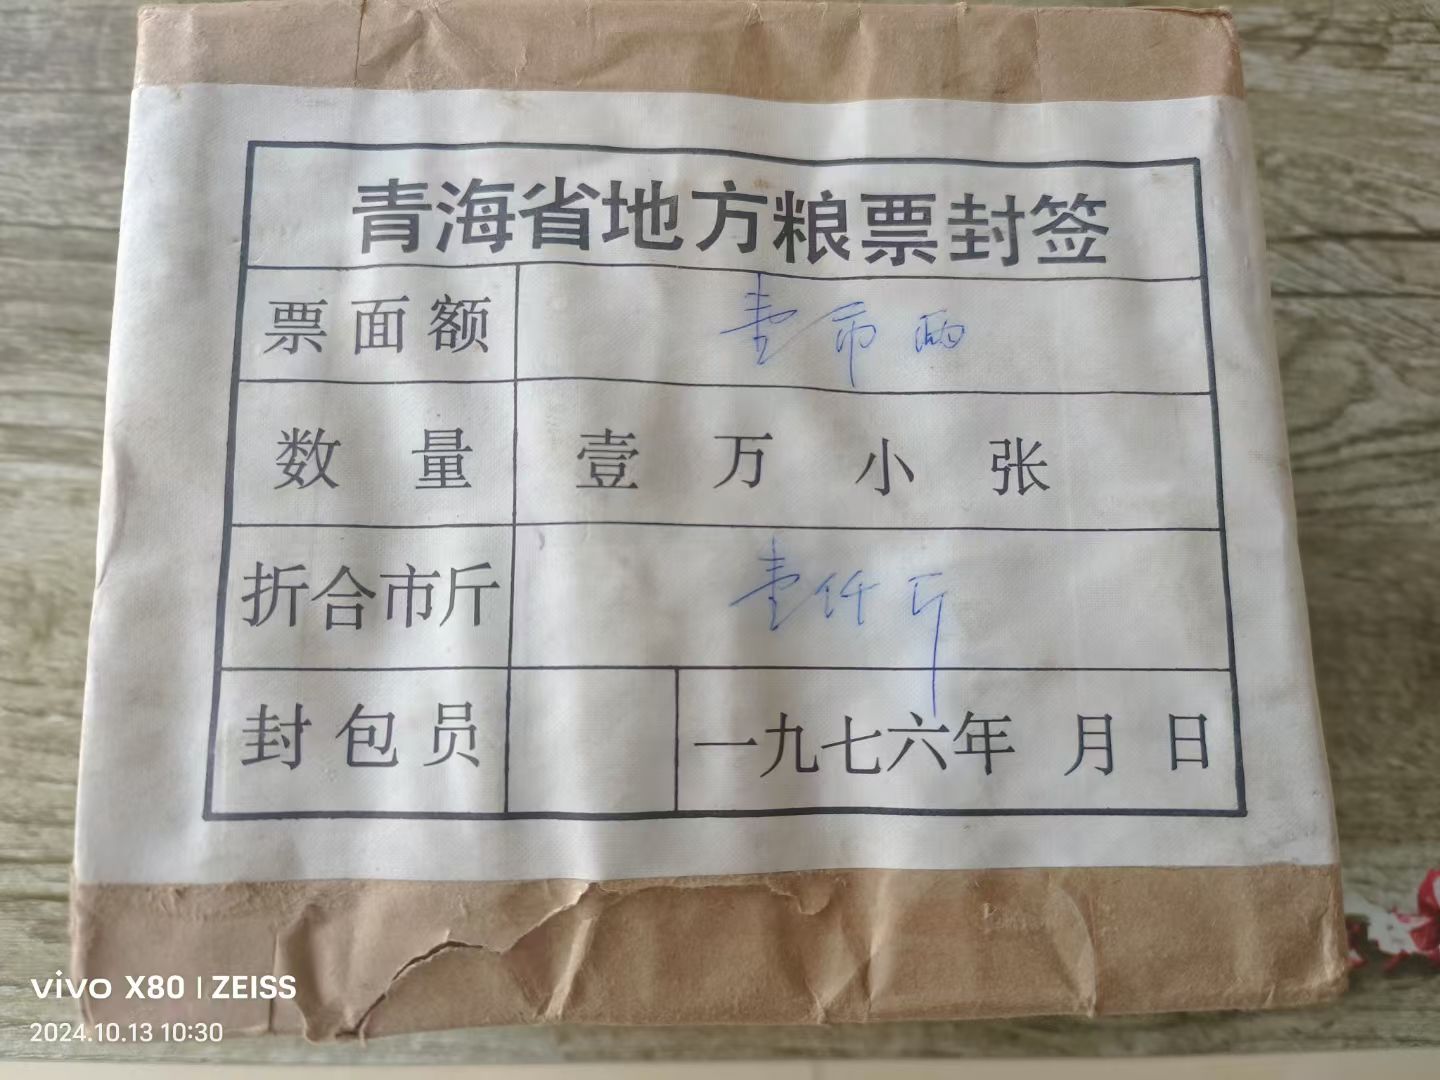 青海省地方粮票封签
票面额 壹市两
数量 壹万小张
折合市斤 壹仟斤
封包员 一九七六年 月 日
vivo X80 | ZEISS
2024.10.13 10:30